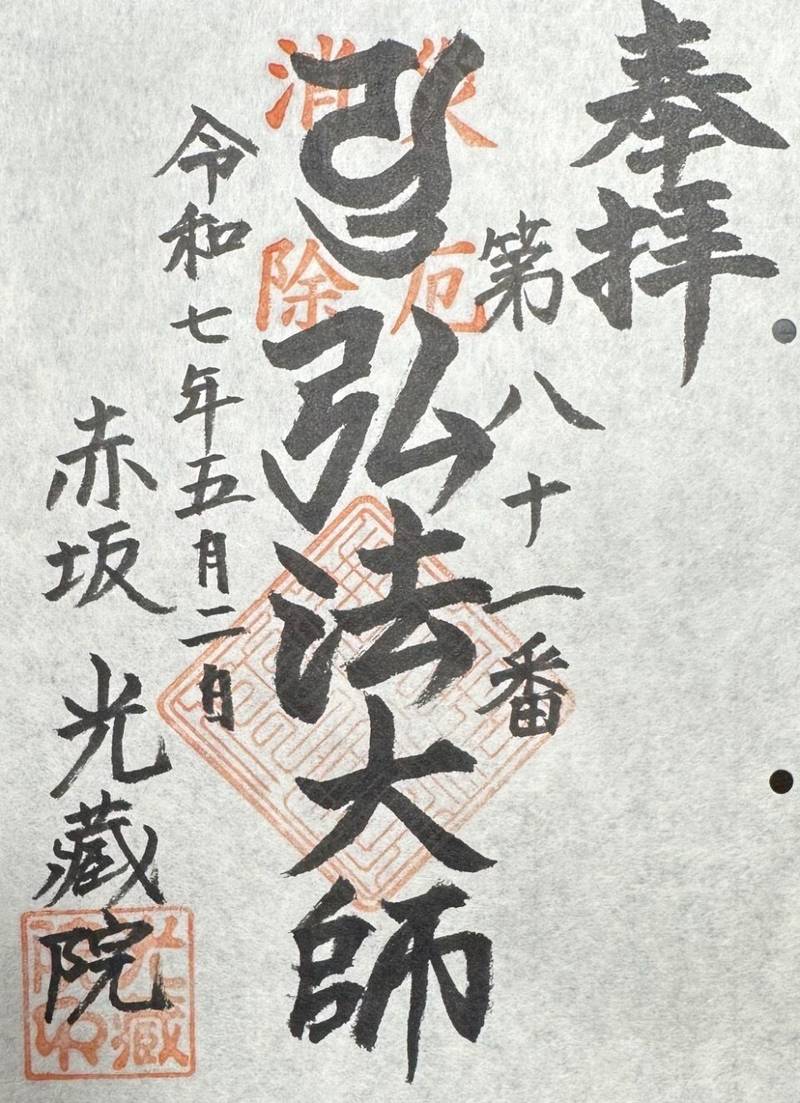 奉拝
第八十一番
災厄
消除
弘法大師
令和七年五月二日
赤坂 光蔵院